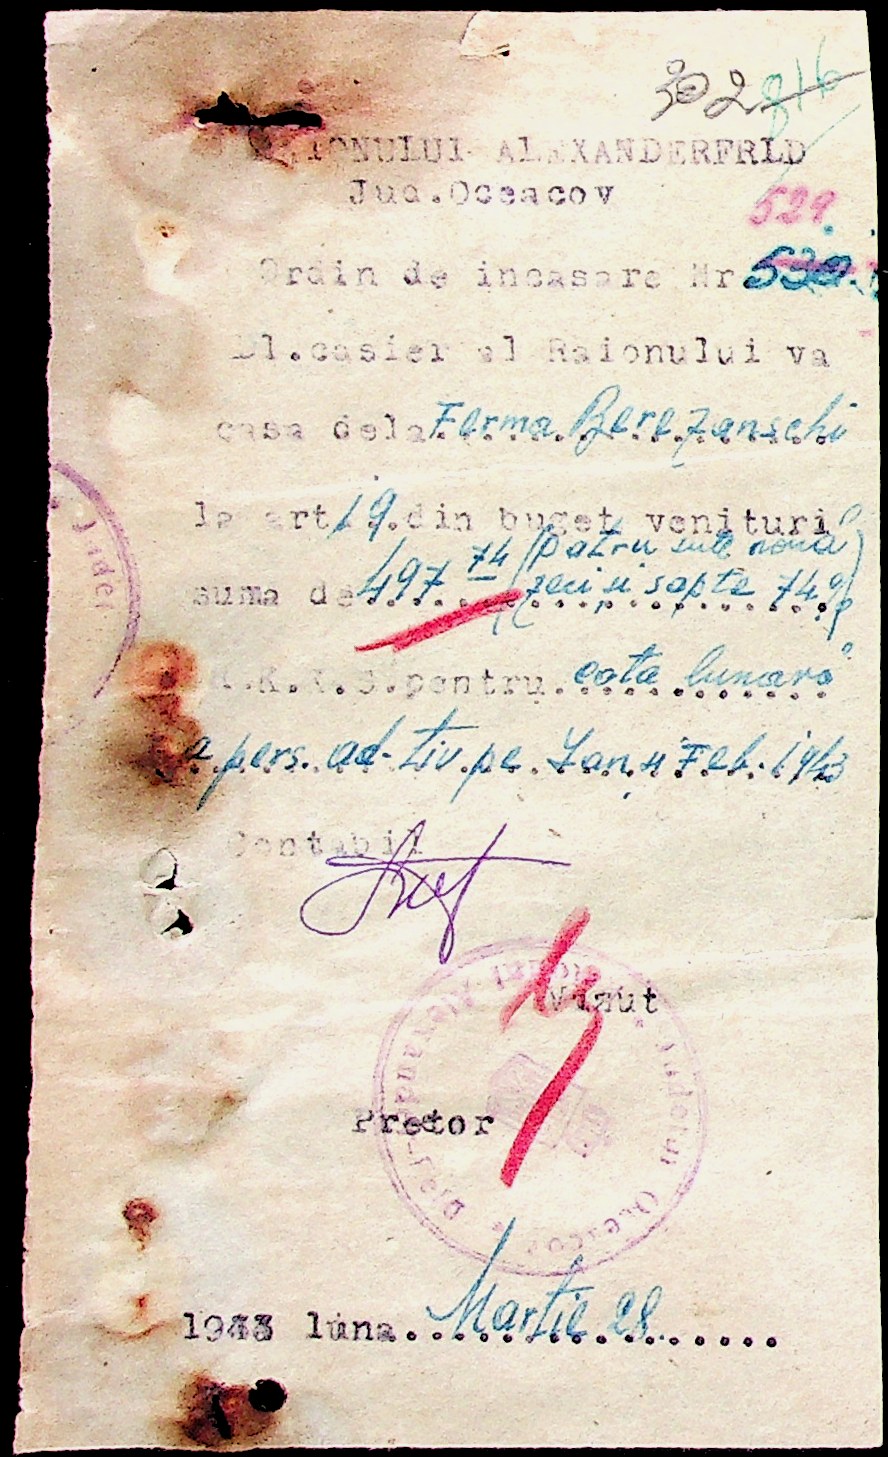 302 816
RAIONULUI ALEXANDERFRLD
Jud.Oceacov
529.
Ordin de incasare Nr 530.
Dl.casier al Raionului va
casa dela Ferma Berezanschi
la art 19.din buget venituri
suma de 497 74 (patru sute nouă
zeci si sapte 74%)
R.K.K.S.pentru cota lunară
a pers. ad-tiv pe Ian. si Feb. 1943
Contabil
Vizut
Pretor
Judetul Oceacov
1943 luna Martie 28